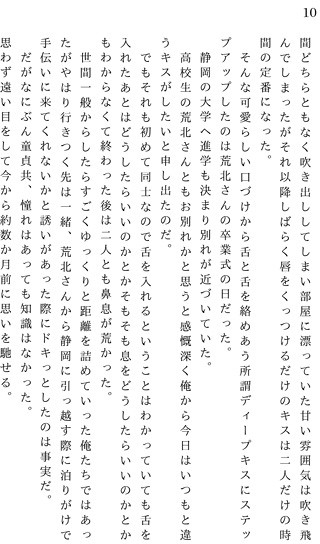 10
間どちらともなく吹き出ししてしまい部屋に漂っていた甘い雰囲気は吹き飛
んでしまったがそれ以降しばらく唇をくっつけるだけのキスは二人だけの時
間の定番になった。
そんな可愛らしい口づけから舌と舌を絡めあう所謂ディープキスにステッ
プアップしたのは荒北さんの卒業式の日だった。
静岡の大学へ進学も決まり別れが近づいていた。
高校生の荒北さんともお別れかと思うと感慨深く俺から今日はいつもと違
うキスがしたいと申し出たのだ。
でもそれも初めて同士なので舌を入れるということはわかっていても舌を
入れたあとはどうしたらいいのかとかそもそも息をどうしたらいいのかとか
もわからなくて終わった後は二人とも鼻息が荒かった。
世間一般からしたらすごくゆっくりと距離を詰めていった俺たちではあっ
たがやはり行きつく先は一緒、荒北さんから静岡に引っ越す際に泊りがけで
手伝いに来てくれないかと誘いがあった際にドキっとしたのは事実だ。
だがなにぶん童貞共、憧れはあっても知識はなかった。
思わず遠い目をして今から約数か月前に思いを馳せる。